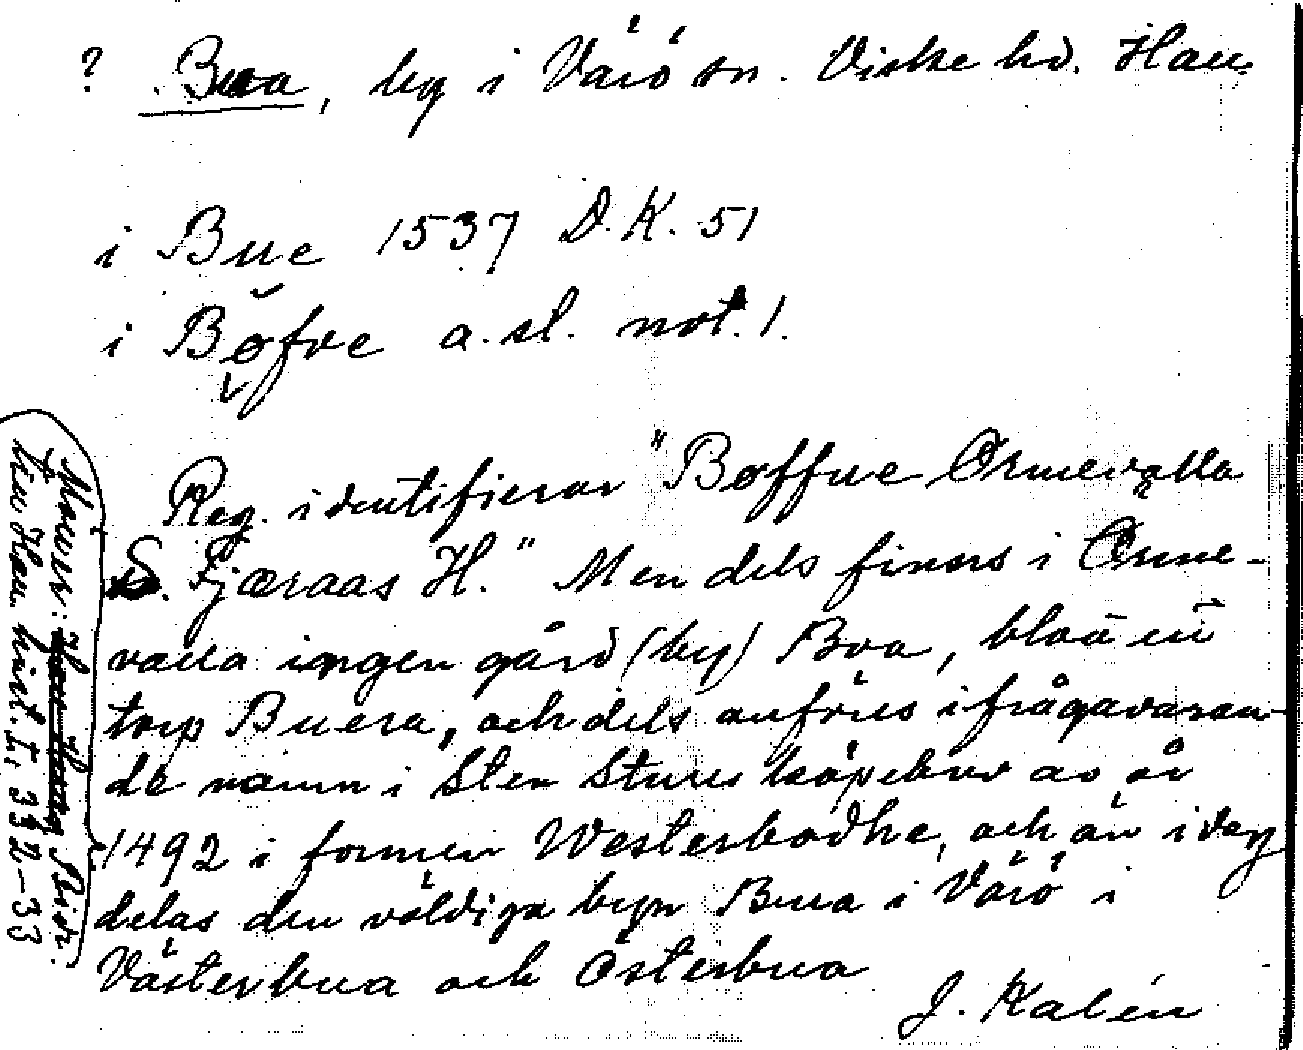 ? Bua, by i Värö sn. Viske hd. Hall.
i Bue 1537 D.K. 51
i Bøfve a. st. not. 1.
Reg. identifierar "Bøffue Ørnevalla
S. Fjæraas H." Men dels finns i Ørne-
valla ingen gård (by) Boa, blott ett
torp Buera, och dels anföres ifrågavaran-
de namn i Sten Stures köpebrev av år
1492 i formen Westerbodhe, och än i dag
delas den väldiga byn Bua i Värö i
Västerbua och Österbua
J. Kalén
hist. t. 332-33